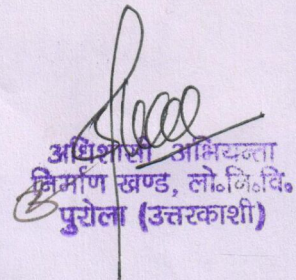 अधिशासी अभियन्ता
निर्माण खण्ड, लो०नि०वि०
पुरोला (उत्तरकाशी)